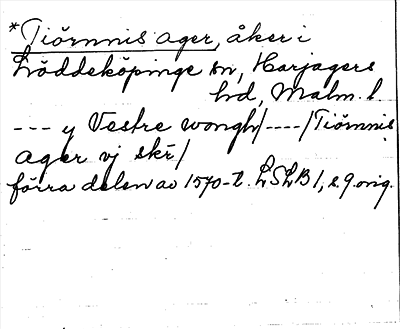 *Tiörnnis ager, åker i
Löddeköpinge sn, Harjagers
hd, Malm. l
--- y Vestre wongh/----/Tiörnnis
ager vj skr/
förra delen av 1570-t. LSLB 1, s. 9 orig.